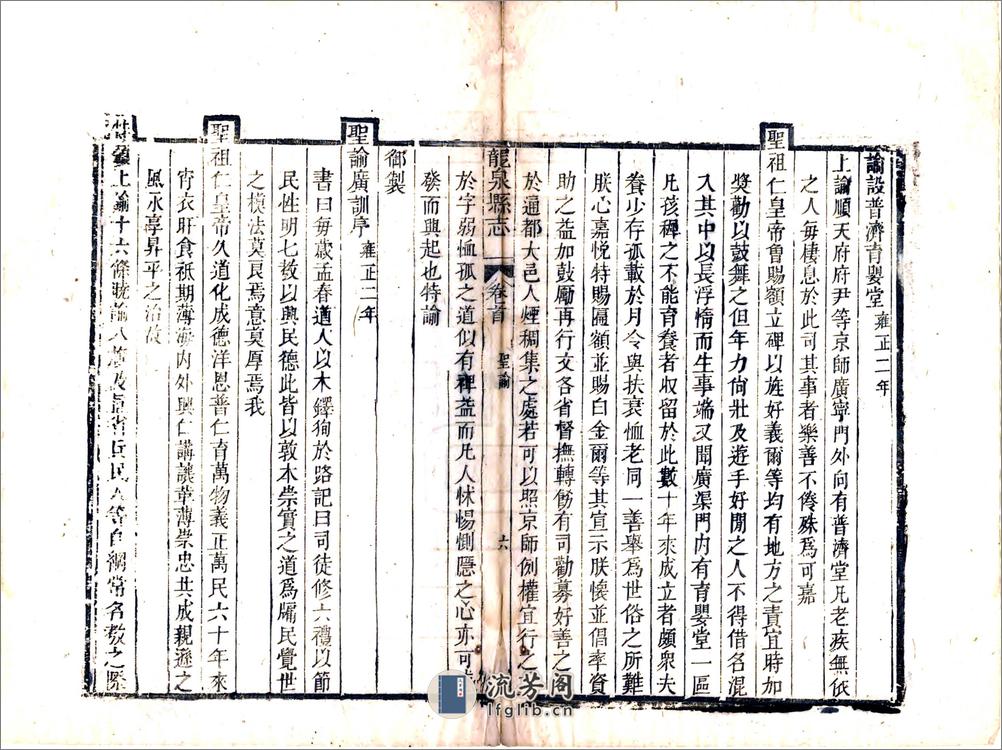 諭設普濟育嬰堂 雍正二年
上諭順天府府尹等京師廣寧門外向有普濟堂凡老疾無依
之人每棲息於此司其事者樂善不倦殊爲可嘉
聖祖仁皇帝曾賜額立碑以旌好義爾等均有地方之責宜時加
獎勸以鼓舞之但年力尙壯及遊手好閒之人不得借名混
入其中以長浮惰而生事端又聞廣渠門內有育嬰堂一區
凡孩稺之不能育養者収留於此數十年來成立者頗衆夫
養少存孤載於月令與扶衰恤老同一善舉爲世俗之所難
朕心嘉悅特賜匾額並賜白金爾等其宣示朕懷並倡率資
助之益加鼓勵再行文各省督撫轉飭有司勸募好善之
於通都大邑人煙稠集之處若可以照京師例權宜行之
龍泉縣志 卷首 聖諭 六
於字弱恤孤之道似有裨益而凡人怵惕惻隱之心亦可
發而興起也特諭
御製
聖諭廣訓序 雍正二年
書曰每歲孟春遒人以木鐸狥於路記曰司徒修六禮以節
民性明七教以興民德此皆以敦本崇實之道爲牖民覺世
之模法莫良焉意莫厚焉我
聖祖仁皇帝久道化成德洋恩普仁育萬物義正萬民六十年來
宵衣旰食祇期薄海內外興仁講讓革薄崇忠共成親遜之
風永享昇平之治故
上諭十六條曉諭八旗及直省兵民人等自綱常名教之際
流芳阁
lfglib.cn